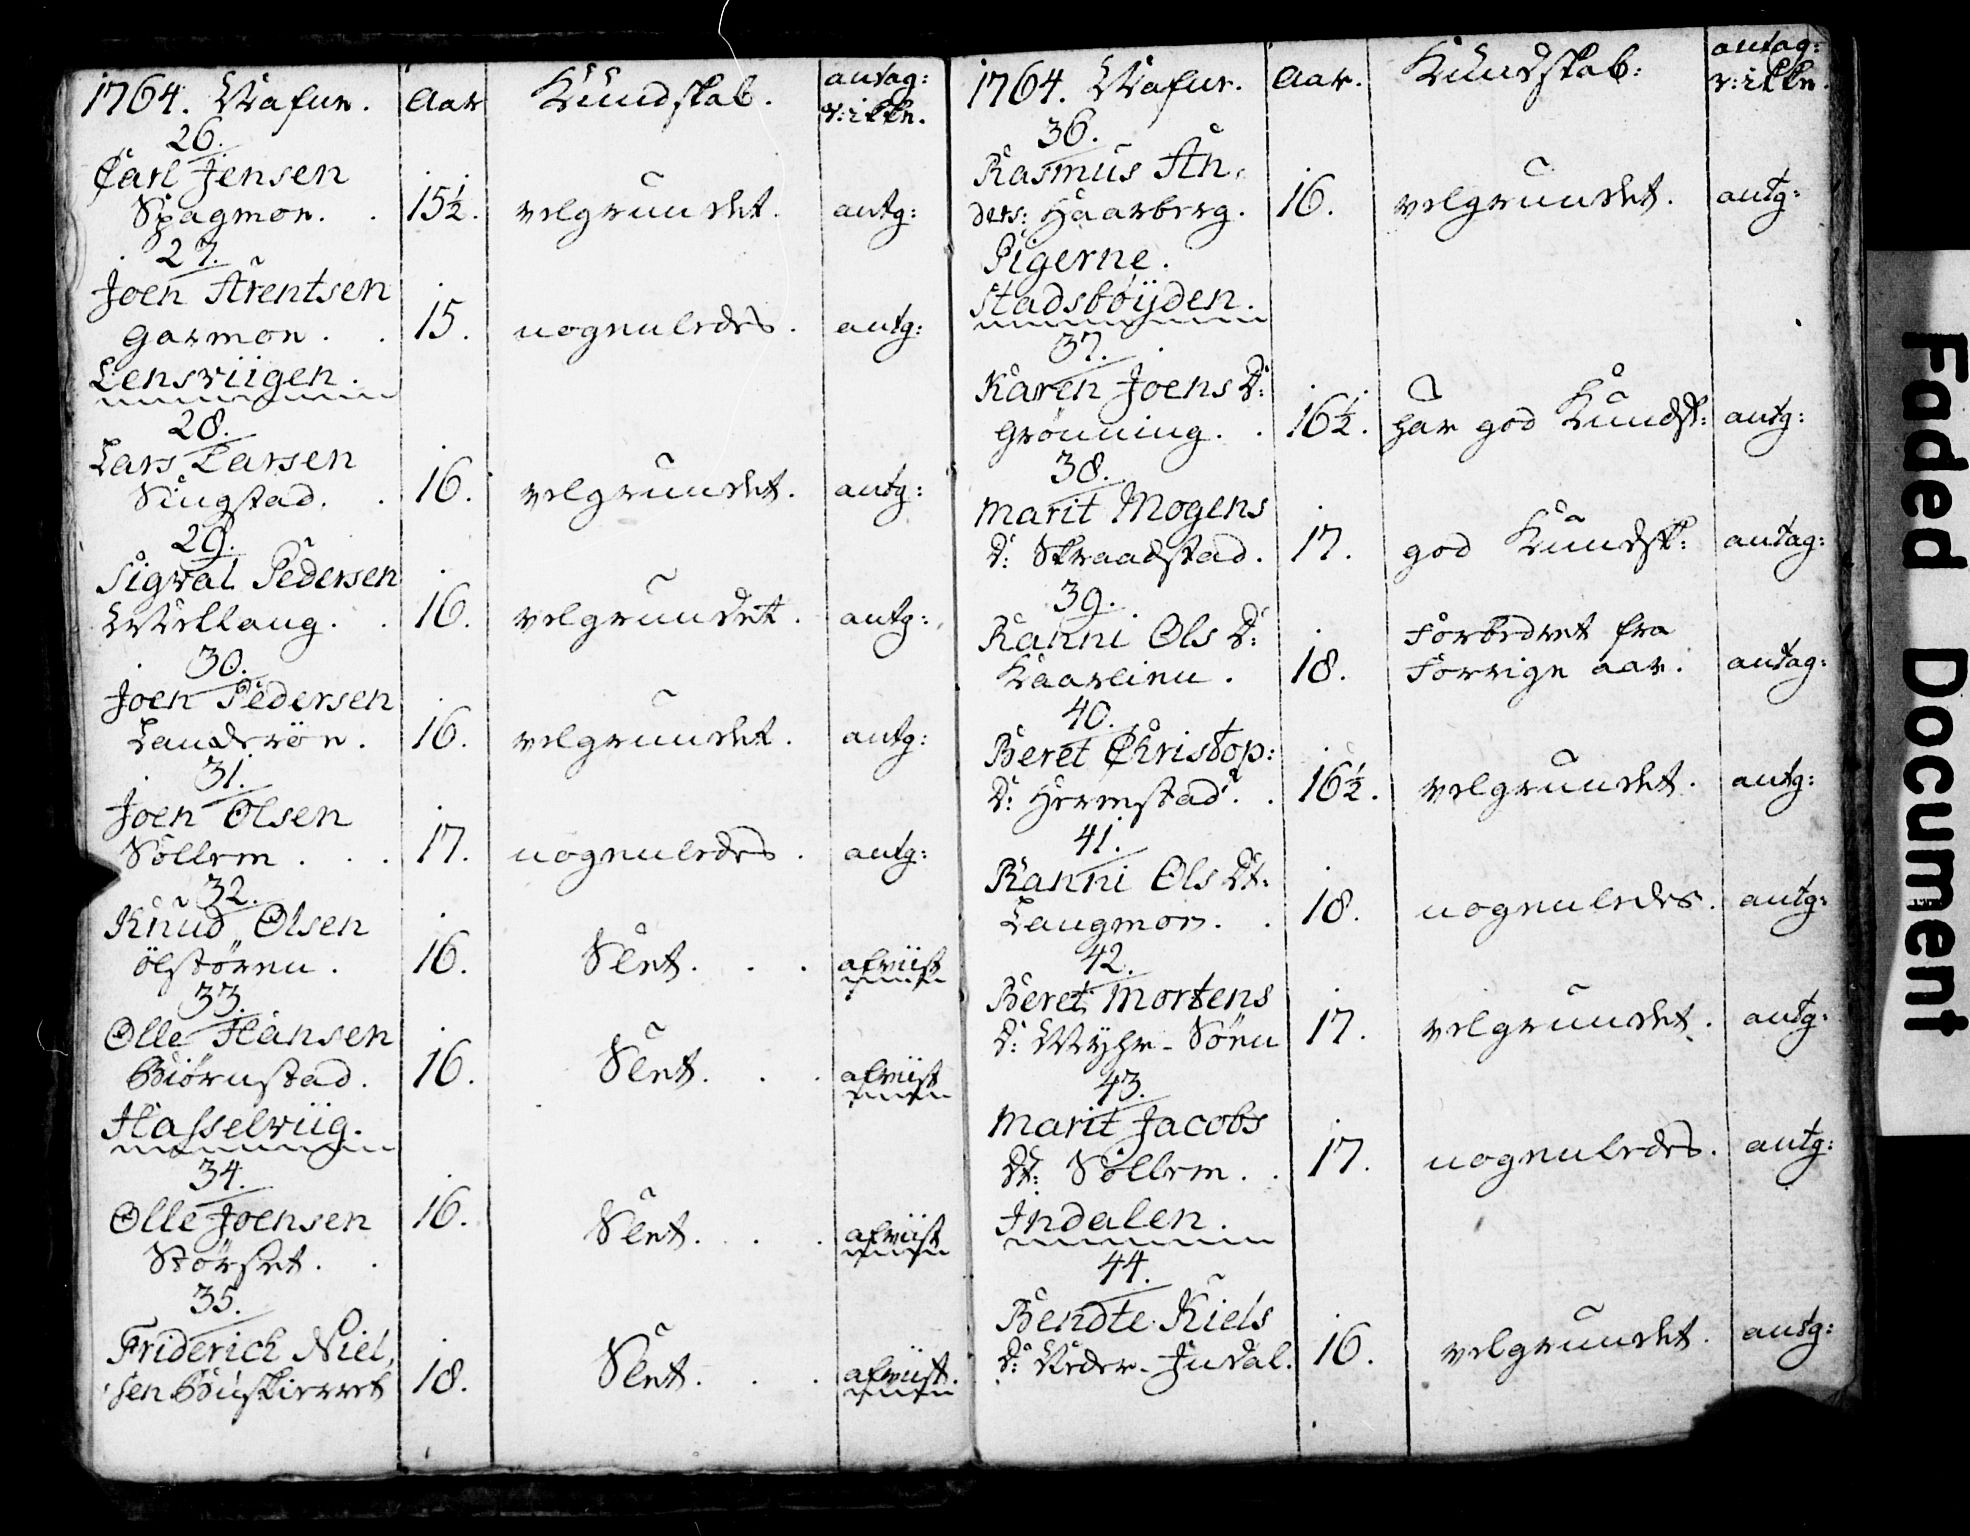 1764. Nafne. Aar Kundskab. antag:
e: ikke.
26.
Carl Jensen
Spagmoe. . 15½. velgrundet. antg:
27.
Joen Arentsen
Garmoe . . 15. nogenledes. antg:
Lensviigen.
28.
Lars Larsen
Singstad. . 16. velgrundet. antg:
29.
Sigval Pedersen
Mellang. . 16. velgrundet. antg:
30.
Joen Pedersen
Landrøe. 16. velgrundet. antg:
31.
Joen Olsen
Sollem . . . 17. nogenledes. antg:
32.
Knud Olsen
Ølstøren. 16. Slet. . . afviist
33.
Olle Hansen
Biørnstad. 16. Slet. . . afviist
Hasselviig.
34.
Olle Joensen 16. Slet. . . afviist
Størset. .
35.
Friderich Niel,
sen Buskierret 18. Slet. . . afviist.
1764. Nafne. Aar. Kundskab: antag:
e: ikke.
36.
Rasmus An,
ders: Haarberg. 16. velgrundet. antg:
Pigerne.
Stadsbøÿden.
37.
Karen Joens D:
Grønning. . 16½. har god Kundsk: antg:
38.
Marit Mogens
D: Skraadstad. 17. god Kundsk: antag:
39.
Ranni Ols D: Forbedret fra
Kaarlien. 18. Forrige aar. antag:
40.
Beret Christop:
D: Hermstad. . 16½. velgrundet. antg:
41.
Ranni Ols Dt:
Langmoe. . 18. nogenledes. antg:
42.
Beret Mortens
D: Myhr-Søen 17. velgrundet. antg:
43.
Marit Jacobs
Dt: Sollem. . 17. nogenledes. antg:
Indalen.
44.
Bendte Kiels
D: Neder-Indal. 16. velgrundet. antg:
Faded Document